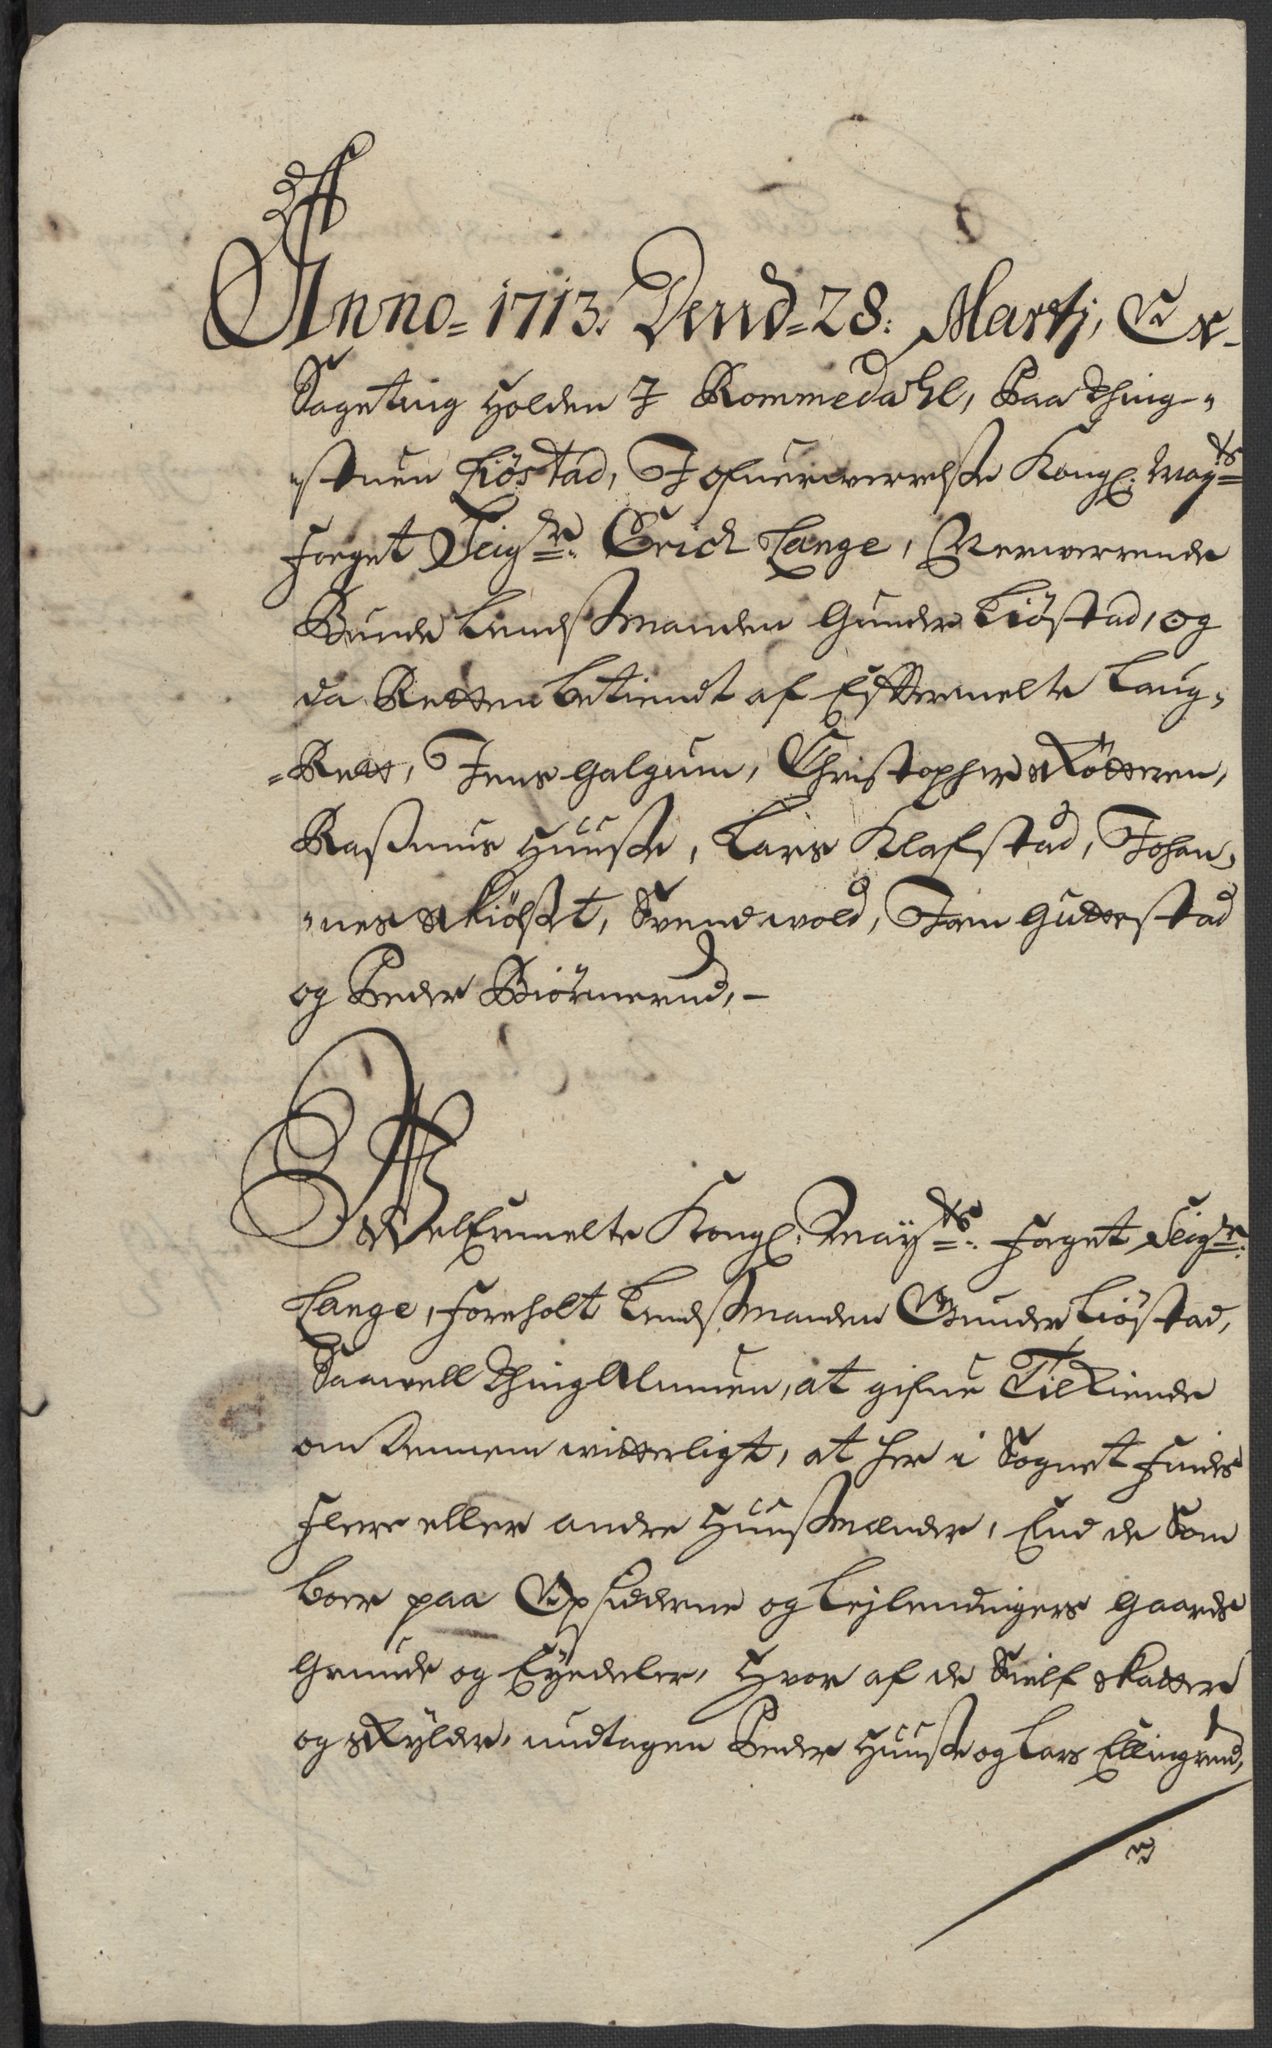 Anno= 1713. Dend= 28: Martj, Er
Sageting Holden I Rommedahl, Paa Thing=
=stuen Liöstad, I ofuerwerrelße Kongl: May:ts
Foeget Seig:r Erich Lange, Nerwerrende
Bunde Lendßmanden Gunder Liöstad, og
da Retten betient af Efftermelte Laug=
=Rett, Jens Galgum, Christopher Skötteren,
Raßmus Huuße, Lars Klafstad, Johan=
=nes Skiölßet, Svend wold, Jon Guttestad
og Peder Biörnerud,-
WelErmelte Kongl: May:ts Foget Seig:r
Lange, Foreholt Lendßmanden Gunder Liöstad,
Saawell Thing Almuen, at gifue Tilkiende
om dennem witterligt, at her i Sognet Findes
Fleere eller andre Huußmænder, End de Som
boer paa Opsidderne og Lejlendingers Gaards
Grunde og Eyedeler, Hvor af de Sielf skatter
og skylder, undtagen Peder Huuße og Lars Ellingrud,